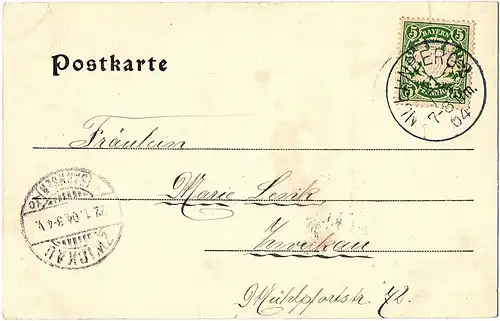 Postkarte
5 BAYERN 5
PFENNIG
NÜRNBERG
7-8 Nm.
04
Fräulein
Marie
Zwickau
Mühlpfortstr. 72.
ZWICKAU
22.1.04.3-4 V.